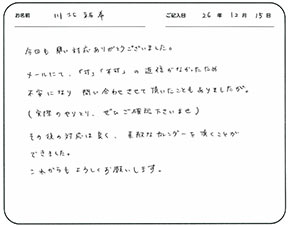 お名前 ご記入日 26年12月15日
今回も早い対応ありがとうございました。
メールにて、「可」「不可」の返信がなかったため
不安になり問い合わせさせて頂いたこともありましたが。
(実際のやりとり、ぜひご確認下さいませ)
その後の対応は良く、素敵なカレンダーを頂くことが
できました。
これからもよろしくお願いします。